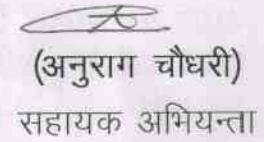 (अनुराग चौधरी)
सहायक अभियन्ता